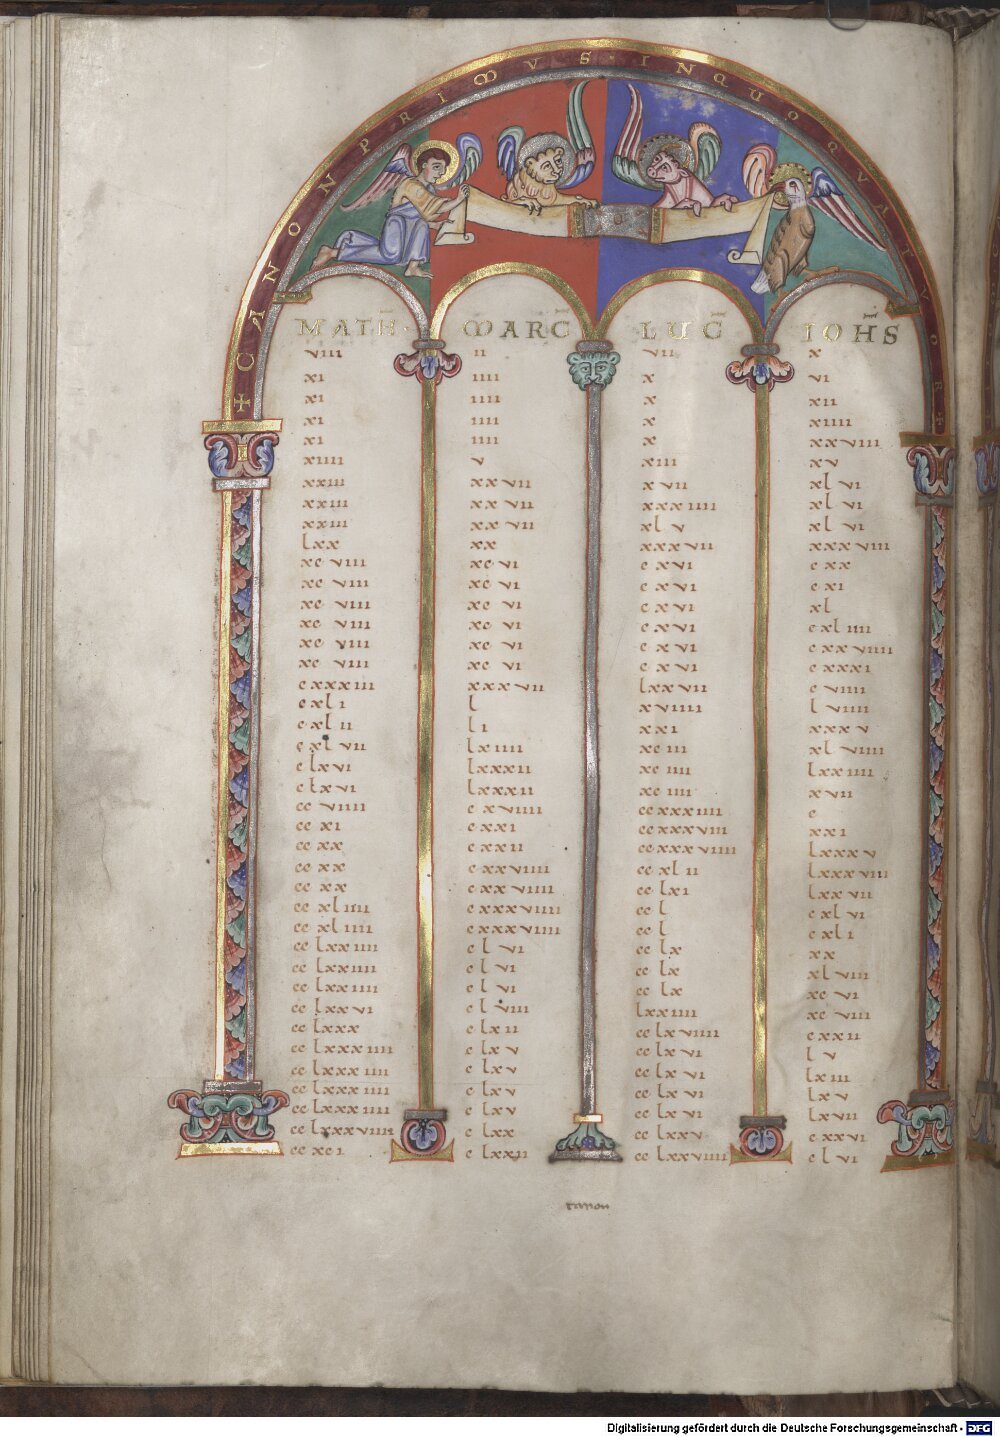 + CANON PRIMVS IN QUO QVATVOR
MATH̄ MARC̄ LUC̄ IOH̄S
viii ii vii x
xi iiii x vi
xi iiii x xii
xi iiii x xiiii
xi iiii x xxviii
xiiii v xiii xv
xxiii xxvii xvii xlvi
xxiii xxvii xxxiiii xlvi
xxiii xxvii xlv xlvi
lxx xx xxxvii xxxviii
xcviii xcvi cxvi cxx
xcviii xcvi cxvi cxi
xcviii xcvi cxvi xl
xcviii xcvi cxvi cxliiii
xcviii xcvi cxvi cxxviiii
xcviii xcvi cxvi cxxxi
cxxxiii xxxvii lxxvii cviiii
cxli l xviiii lviiii
cxlii li xxi xxxv
cxlvii lxiiii xciii xlviiii
clxvi lxxxii xciiii lxxiiii
clxvi lxxxii xciiii xvii
ccviiii cxviiii ccxxxiiii c
ccxi cxxi ccxxxviii xxi
ccxx cxxii ccxxxviiii lxxxv
ccxx cxxviiii ccxlii lxxxviii
ccxx cxxviiii cclxi lxxvii
ccxliiii cxxxviiii ccl cxlvi
ccxliiii cxxxviiii ccl cxli
cclxxiiii clvi cclx xx
cclxxiiii clvi cclx xlviii
cclxxiiii clvi cclx xcvi
cclxxvi clviii lxxiiii xcviii
cclxxx clxii cclxviiii cxxii
cclxxxiiii clxv cclxvi lv
cclxxxiiii clxv cclxvi lxiii
cclxxxiiii clxv cclxvi lxv
cclxxxiiii clxv cclxvi lxvii
cclxxxviiii clxx cclxxv cxxvi
ccxci clxxii cclxxviiii clvi
canon
Digitalisierung gefördert durch die Deutsche Forschungsgemeinschaft - DFG